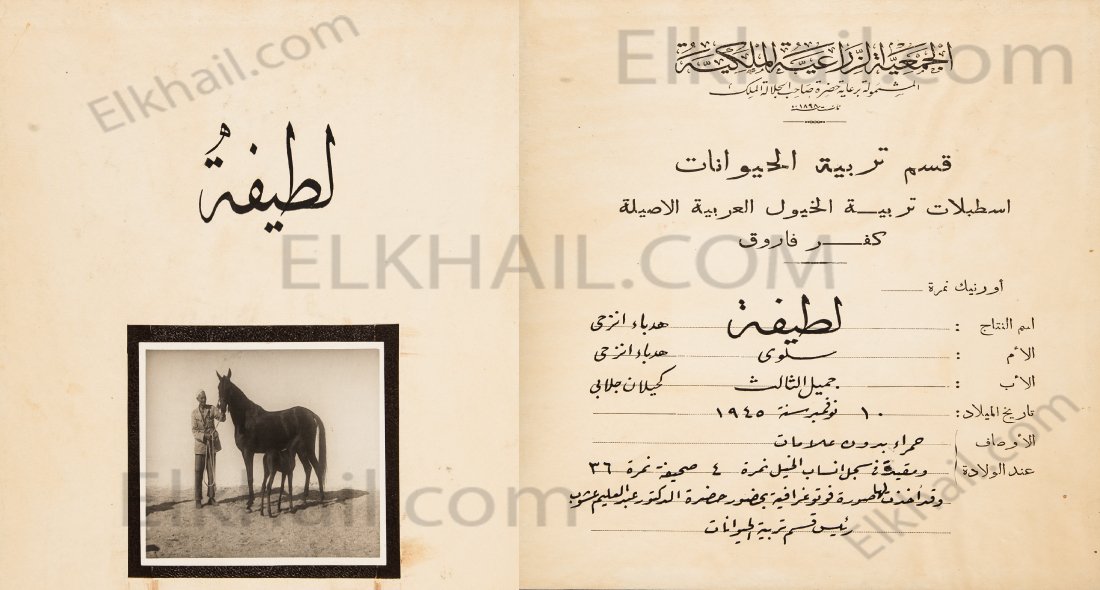 Elkhail.com
لطيفةُ
ELKHAIL.COM
Elkhail.com
Elkhail.com
الجمعية الزراعية الملكية
المشمولة برعاية حضرة صاحب الجلالة الملك
١٨٩٨
قسم تربية الحيوانات
اسطبلات تربية الخيول العربية الاصيلة
كفر فاروق
أورنيك نمرة
اسم النتاج : لطيفة هدباء انزحى
الأم : سلوى هدباء انزحى
الأب : جميل الثالث كحيلان جلابى
تاريخ الميلاد : ١٠ نوفمبر سنة ١٩٤٥
الأوصاف عند الولادة حمراء بدون علامات
ومقيدة في سجل انساب الخيل نمرة ٤ صحيفة نمرة ٣٦
وقد أخذت لها صورة فوتوغرافية بحضور حضرة الدكتور عبد العليم عشوب
رئيس قسم تربية الحيوانات
Elkhail.com